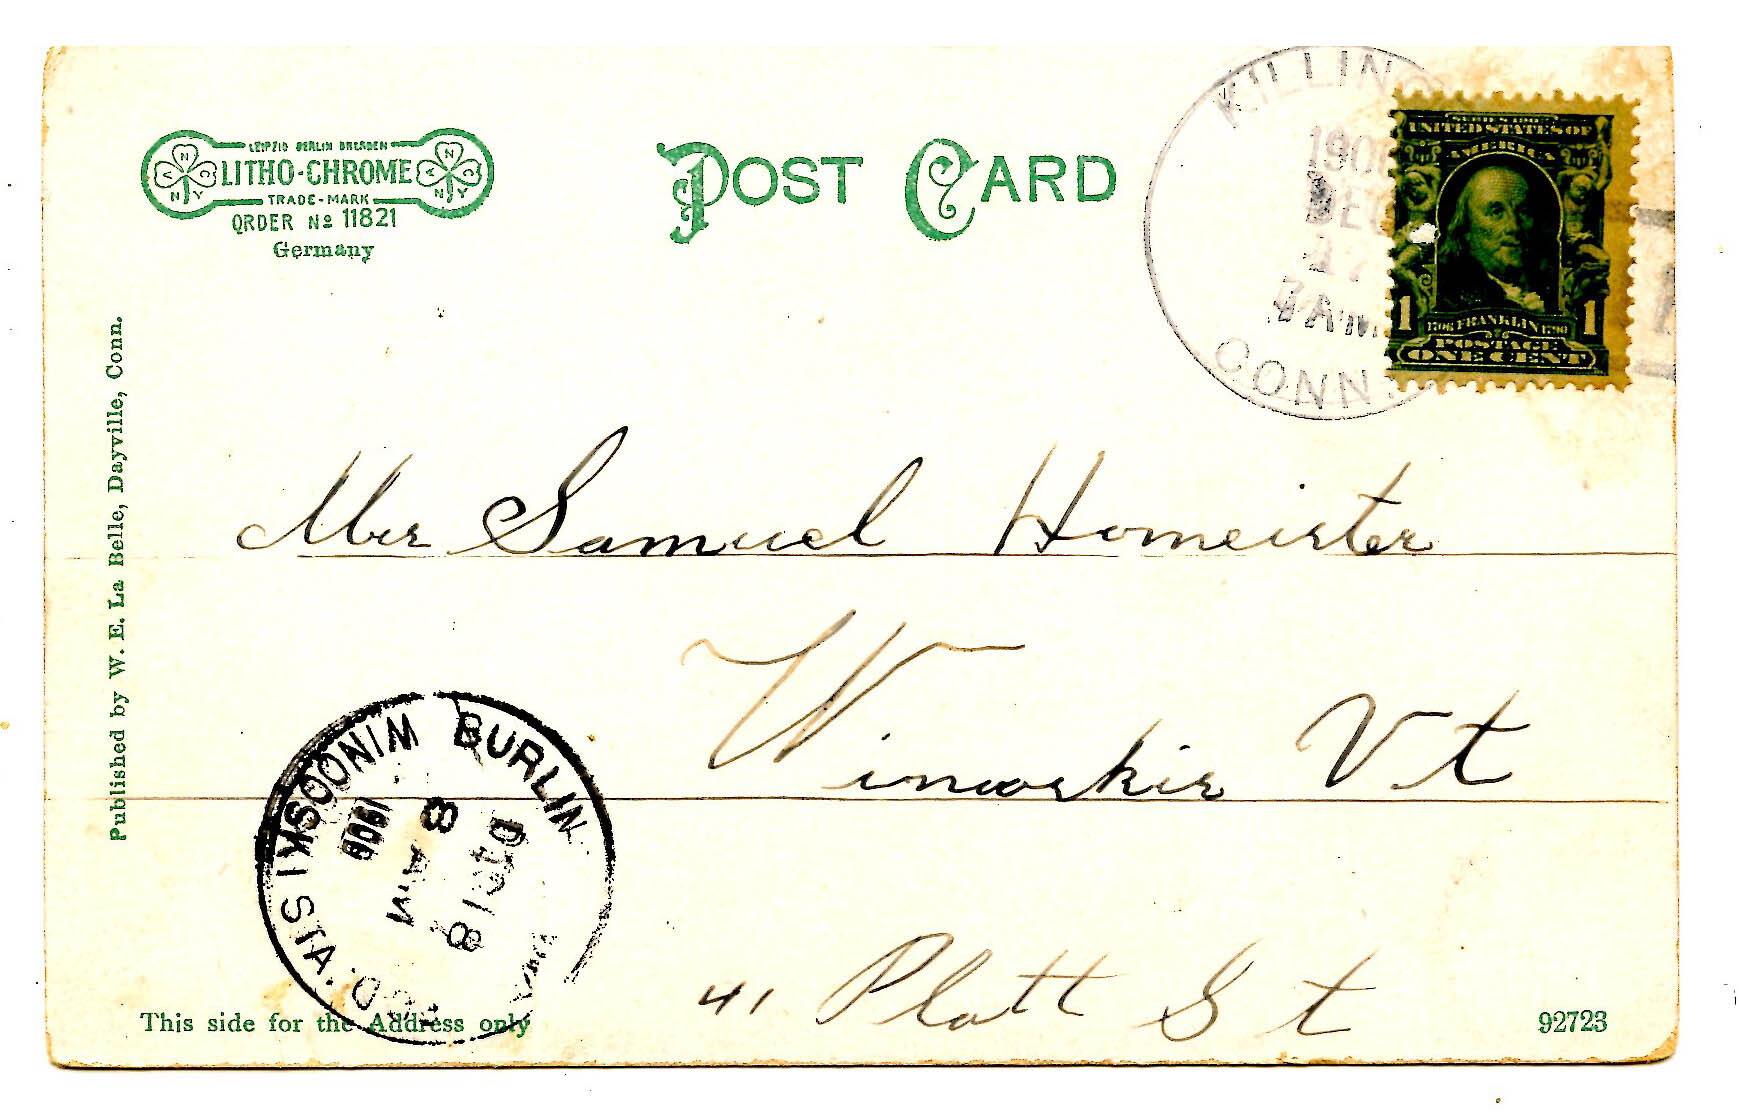 LEIPZIG BERLIN DRESDEN
LITHO-CHROME
TRADE-MARK
ORDER No 11821
Germany
N A O N Y
N A O N Y
POST CARD
KILLING
1908
DEC
17
7 AM
CONN.
SERIES 1902
UNITED STATES OF
AMERICA
1 1706 FRANKLIN 1790 1
POSTAGE
ONE CENT
Published by W. E. La Belle, Dayville, Conn.
Mrs Samuel Homeister
Winooskis Vt
41 Platt St
BURLIN
WINOOSKI STA.
DEC 18
8 AM
1908
This side for the Address only
92723